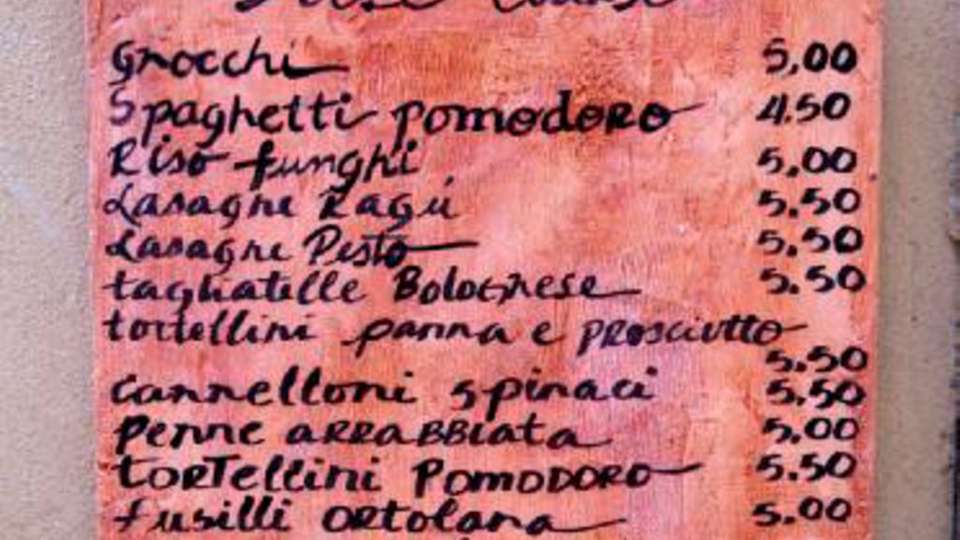 Gnocchi 5,00
Spaghetti pomodoro 4.50
Riso funghi 5,00
Lasagne Ragú 5.50
Lasagne Pesto 5.50
tagliatelle Bolognese 5.50
tortellini panna e prosciutto
5.50
cannelloni spinaci 5.50
penne arrabbiata 5.00
torTellini Pomodoro 5.50
fusilli ortolana 5.00